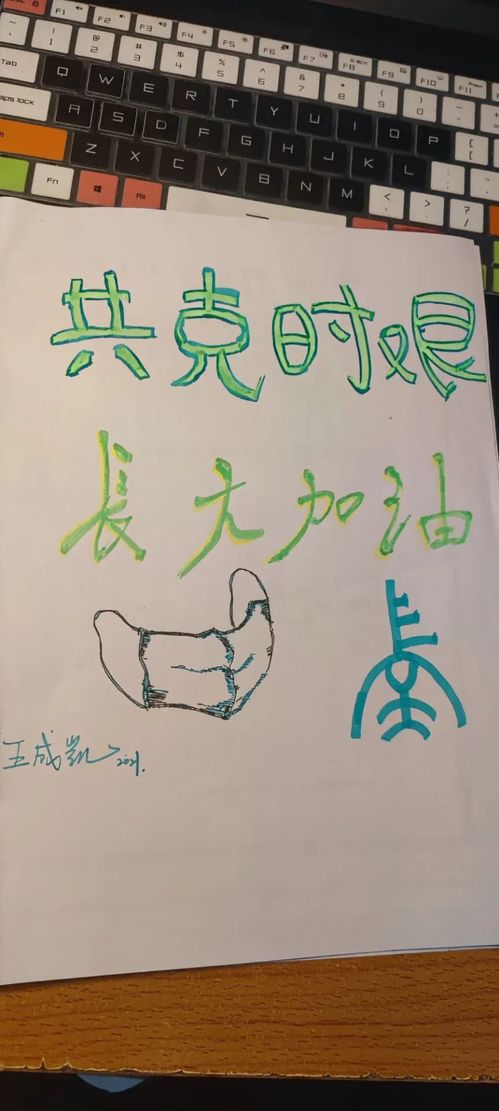 F1 F2 F3 F4 F5 F6 F7 F8 F9 F10 F11
! 1 @ 2 # 3 $ 4 % 5 ^ 6 & 7 * 8 ( 9 ) 0
Tab Q W E R T Y U I O P
A S D F G H J K L
Z X C V B N M < , > . ? /
Fn
共克时艰
長大加油
王成凯 2021.